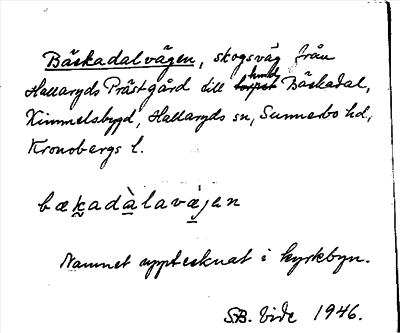 Bäckadalvägen, skogsväg från
Hallaryds Prästgård till hemd. Bäckadal,
Kimmelsbygd, Hallaryds sn, Sunnerbo hd,
Kronobergs l.
bækadàlavæ̀jen
Namnet upptecknat i kyrkbyn.
S.B. Vide 1946.